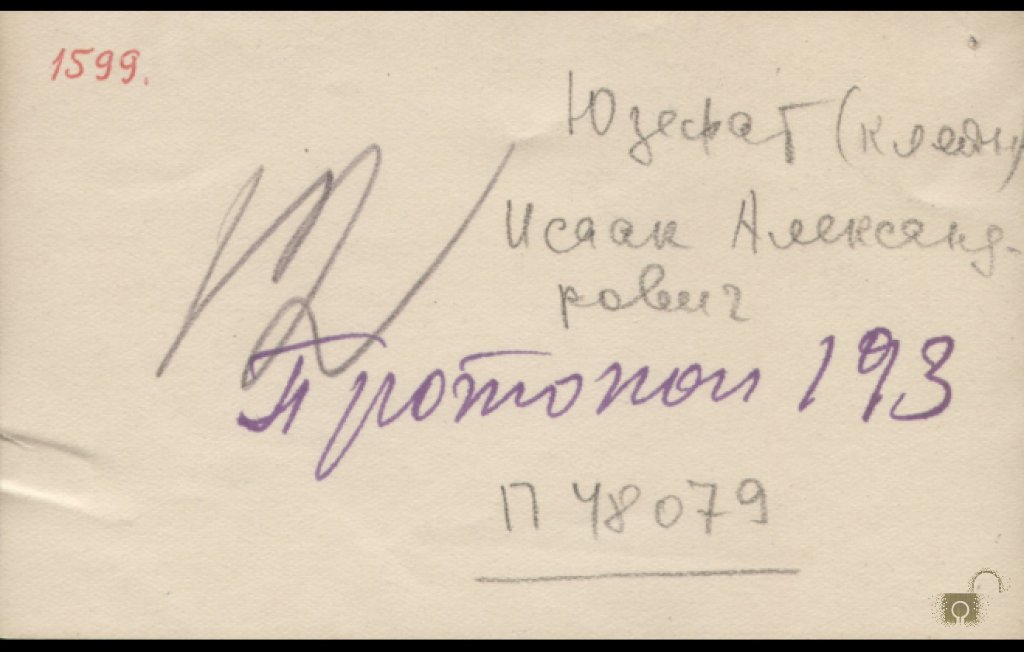 1599.
Юзефат (Клейн)
Исаак Александ-
рович
Протокол 193
П 48079